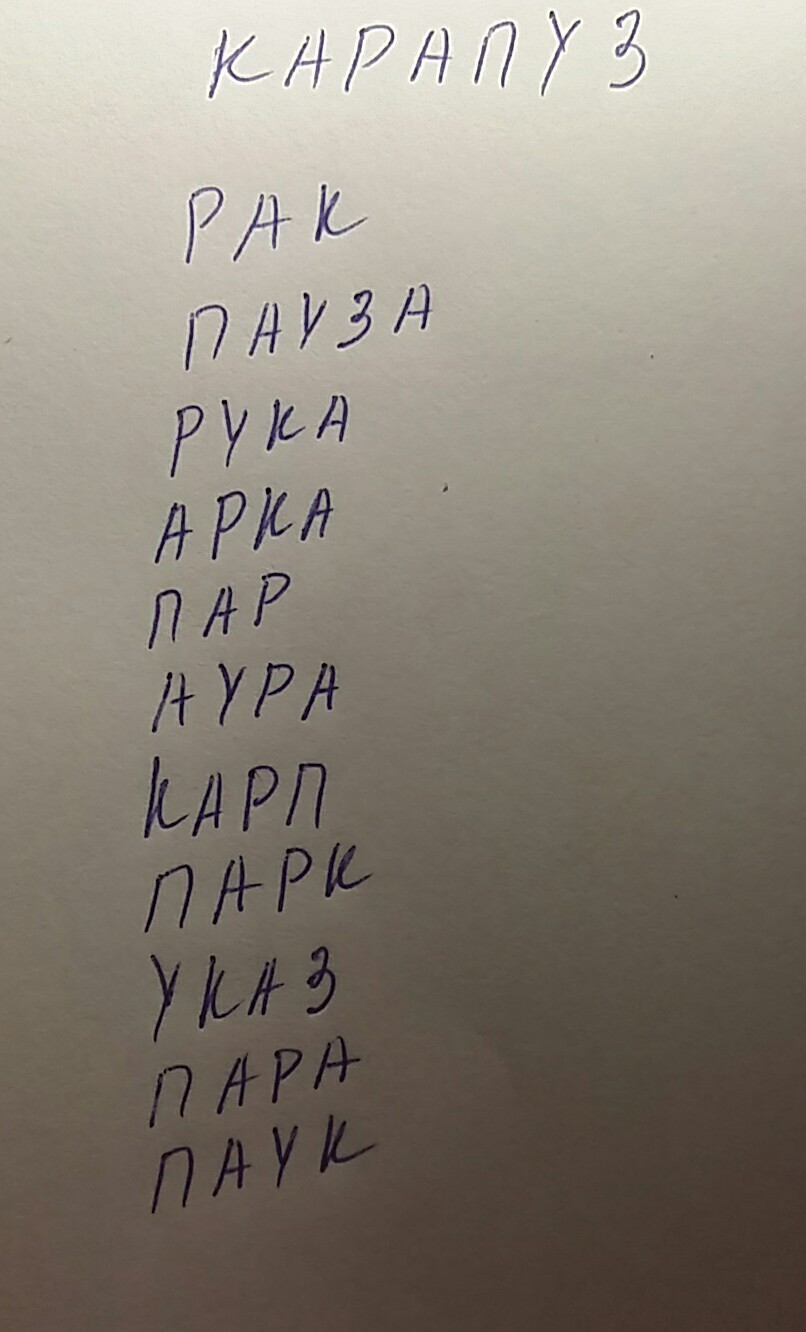 КАРАПУЗ
РАК
ПАУЗА
РУКА
АРКА
ПАР
АУРА
КАРП
ПАРК
УКАЗ
ПАРА
ПАУК